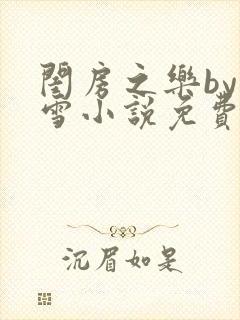 閨房之樂by
雪小說免費
沉眉如是